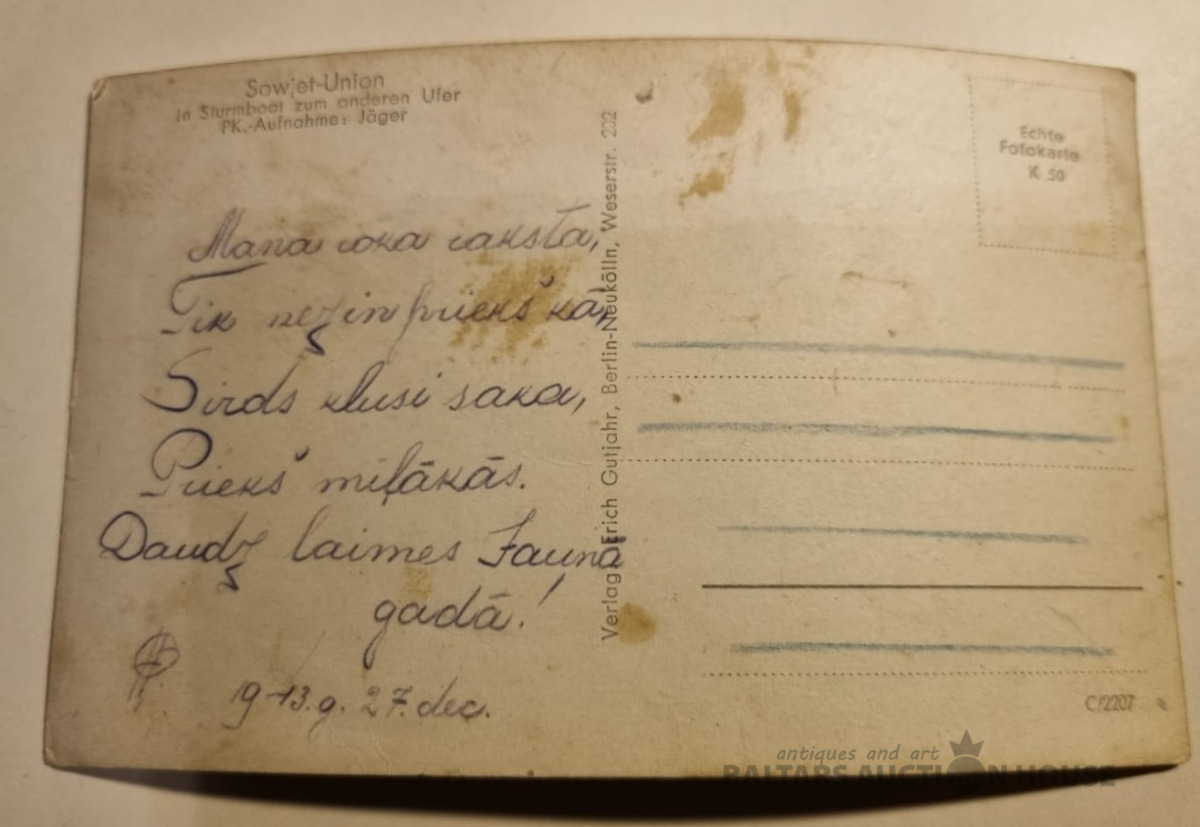 Sowjet-Union
In Sturmboot zum anderen Ufer
PK.-Aufnahme: Jäger
Echte
Fotokarte
K 50
Mana roka raksta,
Tik nezin priekš kā,
Sirds klusi saka,
Priekš miļākās.
Daudz laimes Jaunā
gadā!
19-43.g. 27. dec.
Verlag Erich Gutjahr, Berlin-Neukölln, Weserstr. 202
C/2207
antiques and art
BALTARS AUCTION HOUSE